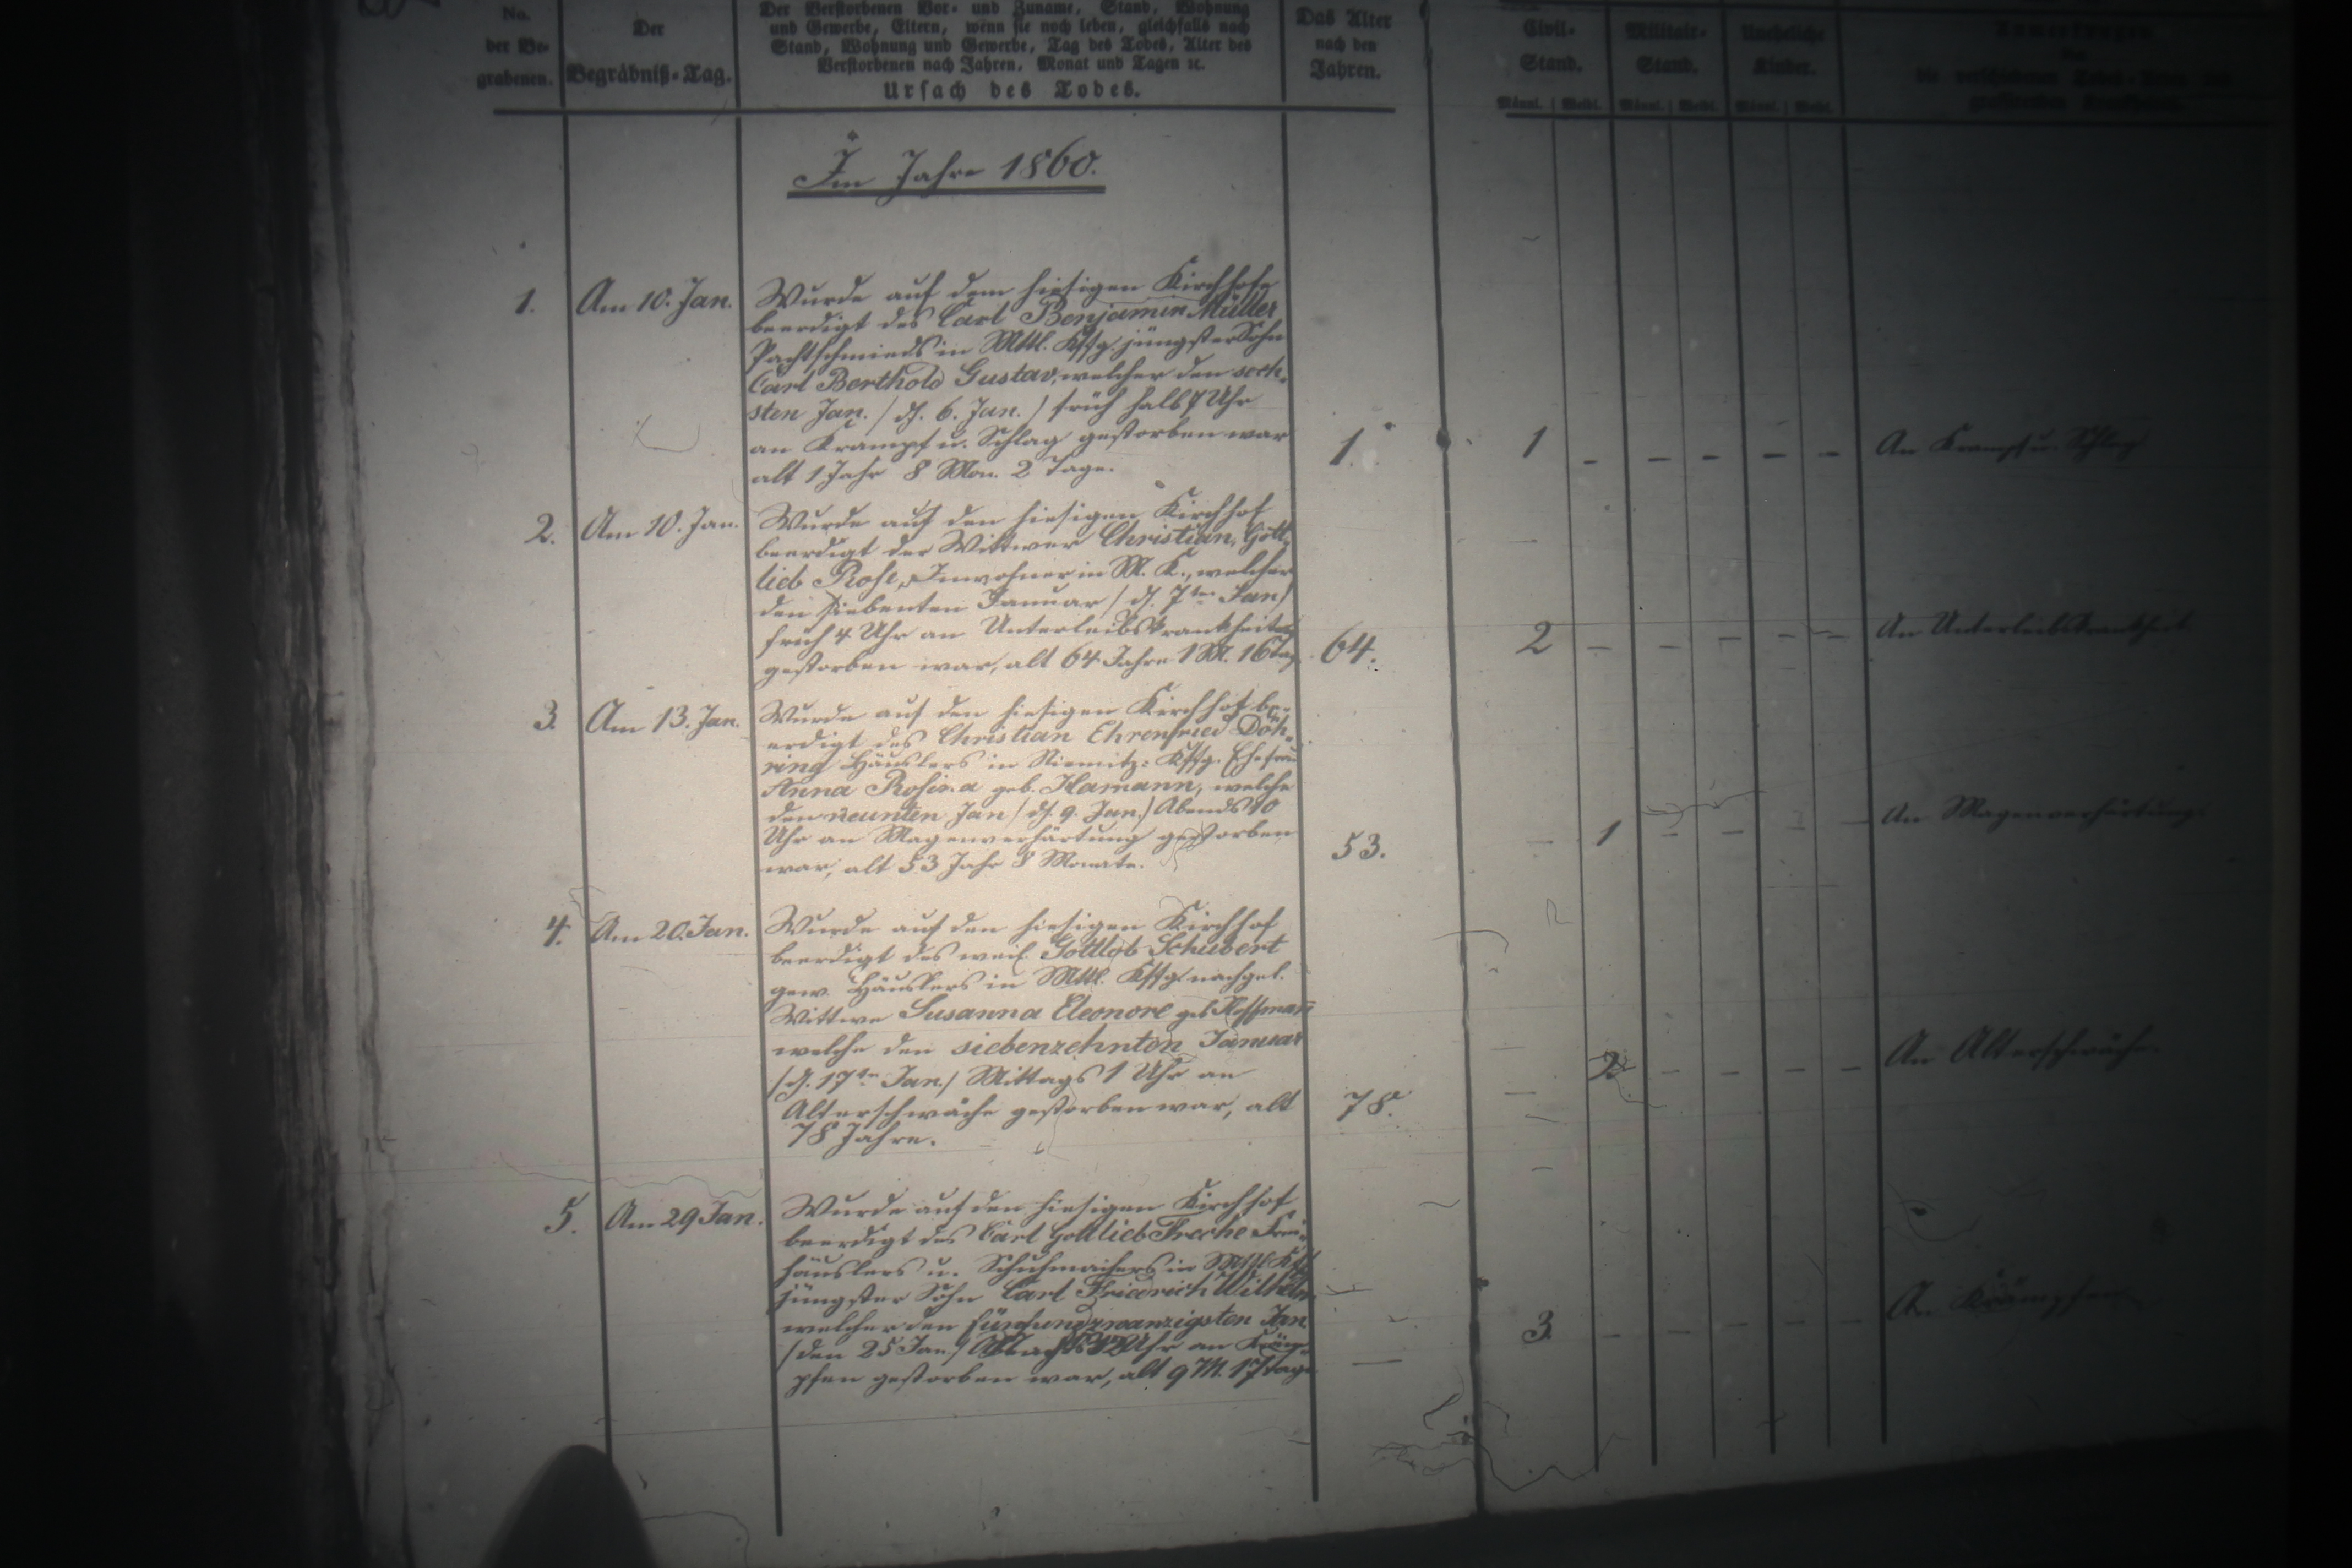 No.
der Be-
grabenen.
Der
Begräbniß-Tag.
Der Verstorbenen Vor- und Zuname, Stand, Wohnung
und Gewerbe, Eltern, wenn sie noch leben, gleichfalls nach
Stand, Wohnung und Gewerbe, Tag des Todes, Alter des
Verstorbenen nach Jahren, Monat und Tagen ꝛc.
Ursach des Todes.
Das Alter
nach den
Jahren.
Civil-
Stand.
Militair-
Stand.
Uneheliche
Kinder.
Anmerkungen
Männl. Weibl. Männl. Weibl. Männl. Weibl.
Im Jahre 1860.
1. Am 10. Jan.
Wurde auf dem hiesigen Kirchhofe
beerdigt des Carl Benjamin Müller
Pachtschmieds in Mttl. Kffg. jüngster Sohn
Carl Berthold Gustav, welcher den sech-
sten Jan. / d. 6. Jan. / früh halb 7 Uhr
an Krampf u. Schlag gestorben war
alt 1 Jahr 8 Mon. 2 Tage.
1. 1 - - - - - An Krampf u. Schlag
2. Am 10. Jan.
Wurde auf den hiesigen Kirchhof
beerdigt der Wittwer Christian Gott-
lieb Rose, Inwohner in M. K., welcher
den siebenten Januar / d. 7ten Jan /
früh 4 Uhr an Unterleibskrankheiten
gestorben war, alt 64 Jahre 1 M. 16 Tag
64. 2 - - - - - An Unterleibskrankheit
3. Am 13. Jan.
Wurde auf den hiesigen Kirchhof be-
erdigt des Christian Ehrenfried Döh-
ring Häuslers in Niemitz-Kffg. Ehefrau
Anna Rosina geb. Hamann, welche
den neunten Jan / d. 9. Jan. / Abends 10
Uhr an Magenverhärtung gestorben
war, alt 53 Jahr 8 Monate.
53. - 1 - - - - An Magenverhärtung
4. Am 20. Jan.
Wurde auf den hiesigen Kirchhof
beerdigt des weil. Gottlob Schubert
gew. Häuslers in Mttl. Kffg. nachgel.
Wittwe Susanna Eleonore geb Hoffmann
welche den siebenzehnten Januar
/ d. 17ten Jan. / Mittags 1 Uhr an
Alterschwäche gestorben war, alt
78 Jahre.
78. - 2 - - - - An Alterschwäche.
5. Am 29 Jan.
Wurde auf den hiesigen Kirchhof
beerdigt des Carl Gottlieb Freche Frei-
häuslers u. Schuhmachers in Mttl Kffg
jüngster Sohn Carl Friedrich Wilhelm
welcher den fünfundzwanzigsten Jan
/ den 25 Jan. / Uhr an Kräm-
pfen gestorben war, alt 9 M. 17 Tage
- 3. - - - - - An Krämpfen